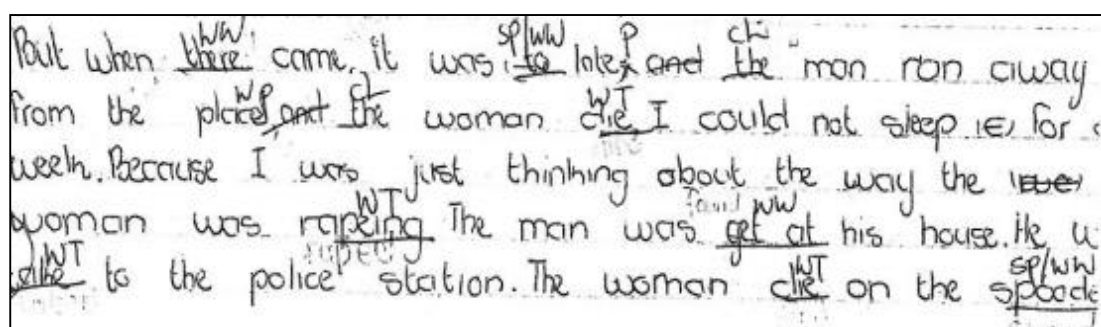 WW SP/WW P
But when there came, it was to late and the man ran away
WP WT
from the place and the woman die I could not sleep for
week. Because I was just thinking about the way the
WT WW
woman was rapeing The man was get at his house. He
WT WT SP/WW
to the police station. The woman die on the